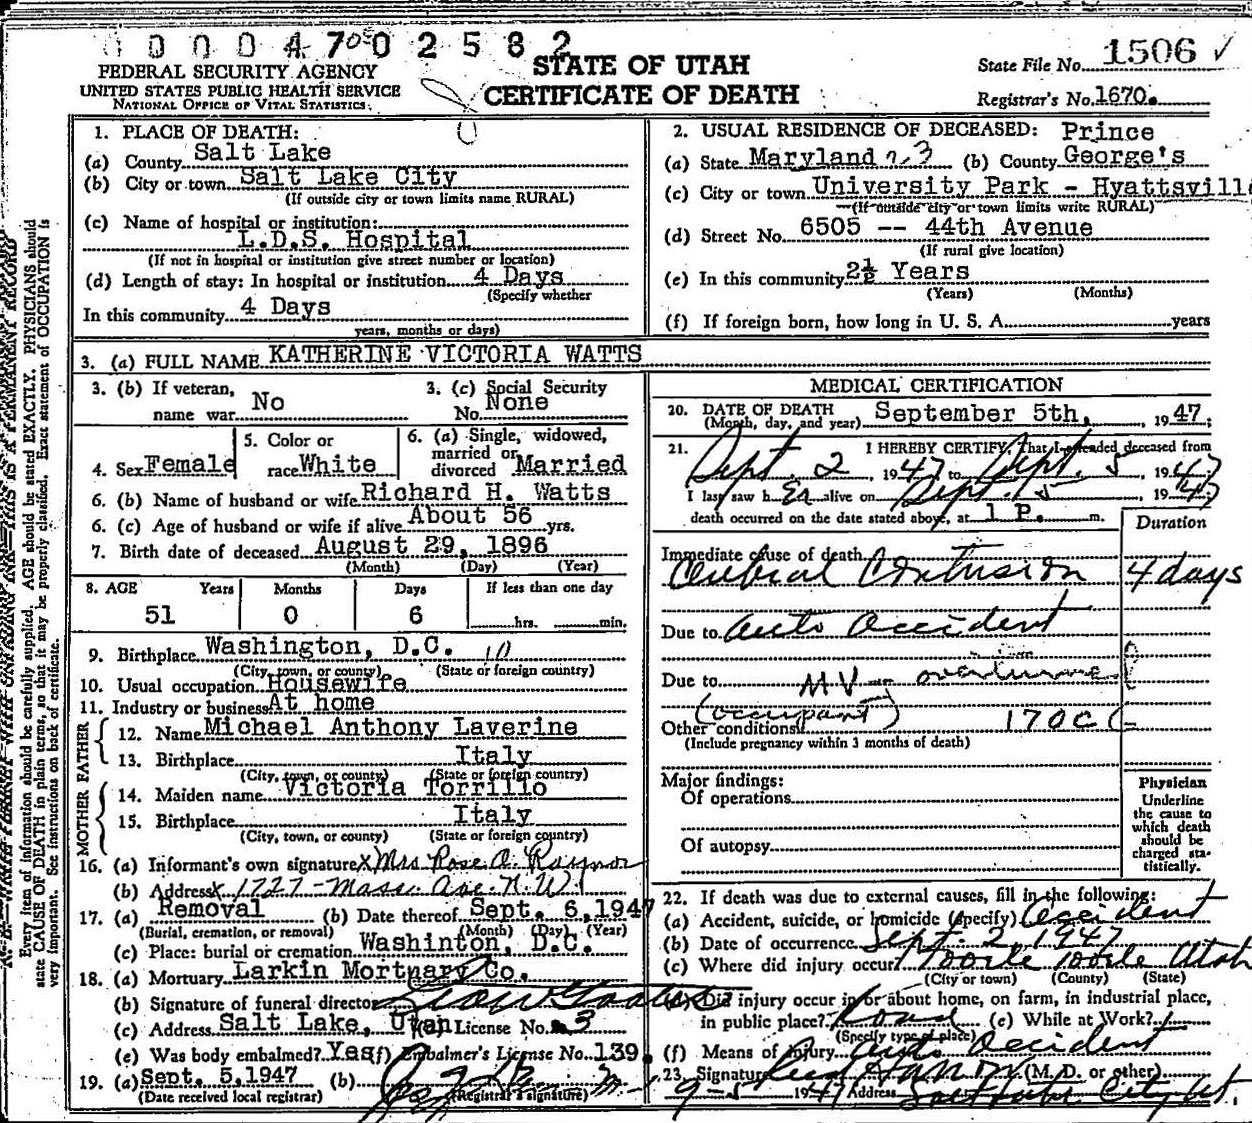 0 0 0 0 4 7 0 0 2 5 8 2
FEDERAL SECURITY AGENCY
UNITED STATES PUBLIC HEALTH SERVICE
NATIONAL OFFICE OF VITAL STATISTICS
STATE OF UTAH
CERTIFICATE OF DEATH
State File No. 1506 ✓
Registrar's No. 1670.
1. PLACE OF DEATH:
(a) County Salt Lake
(b) City or town Salt Lake City
(If outside city or town limits name RURAL)
(c) Name of hospital or institution:
L.D.S. Hospital
(If not in hospital or institution give street number or location)
(d) Length of stay: In hospital or institution 4 Days
(Specify whether
In this community 4 Days
years, months or days)
2. USUAL RESIDENCE OF DECEASED: Prince
(a) State Maryland (b) County George's
(c) City or town University Park - Hyattsvill
(If outside city or town limits write RURAL)
(d) Street No. 6505 -- 44th Avenue
(If rural give location)
(e) In this community 2½ Years
(Years) (Months)
(f) If foreign born, how long in U. S. A. years
3. (a) FULL NAME KATHERINE VICTORIA WATTS
3. (b) If veteran, name war No
3. (c) Social Security No. None
4. Sex Female
5. Color or race White
6. (a) Single, widowed, married or divorced Married
6. (b) Name of husband or wife Richard H. Watts
6. (c) Age of husband or wife if alive About 56 yrs.
7. Birth date of deceased August 29, 1896
(Month) (Day) (Year)
8. AGE Years Months Days If less than one day
51 0 6 hrs. min.
9. Birthplace Washington, D.C. 10
(City, town, or county) (State or foreign country)
10. Usual occupation Housewife
11. Industry or business At home
FATHER
12. Name Michael Anthony Laverine
13. Birthplace Italy
(City, town, or county) (State or foreign country)
MOTHER
14. Maiden name Victoria Torrillo
15. Birthplace Italy
(City, town, or county) (State or foreign country)
16. (a) Informant's own signature x Mrs Rose A. Raynor
(b) Address x 1727 - Mass. Ave. N.W.
17. (a) Removal (b) Date thereof Sept. 6, 1947
(Burial, cremation, or removal) (Month) (Day) (Year)
(c) Place: burial or cremation Washinton, D.C.
18. (a) Mortuary Larkin Mortuary Co.
(b) Signature of funeral director
(c) Address Salt Lake, Utah License No. 3
(e) Was body embalmed? Yes (f) Embalmer's License No. 139.
19. (a) Sept. 5, 1947 (b)
(Date received local registrar) (Registrar's signature)
MEDICAL CERTIFICATION
20. DATE OF DEATH September 5th, 1947;
(Month, day, and year)
21. I HEREBY CERTIFY, That I attended deceased from
Sept. 2, 1947 to Sept. 5 1947
I last saw her alive on Sept. 5 1947
death occurred on the date stated above, at 1 P. m.
Duration
Immediate cause of death
Cerebral Contusion 4 days
Due to Auto Accident
Due to MV - overturned
(occupant) 170c
Other conditions
(Include pregnancy within 3 months of death)
Major findings:
Of operations
Of autopsy
Physician
Underline
the cause to
which death
should be
charged sta-
tistically.
22. If death was due to external causes, fill in the following:
(a) Accident, suicide, or homicide (specify) Accident
(b) Date of occurrence Sept. 2, 1947
(c) Where did injury occur? Tooele Tooele Utah
(City or town) (County) (State)
(d) Did injury occur in or about home, on farm, in industrial place,
in public place? Road (e) While at Work?
(Specify type of place)
(f) Means of Injury Auto Accident
23. Signature (M. D. or other)
9-5 1947 Address Salt Lake City Ut.
Every item of information should be carefully supplied. AGE should be stated EXACTLY. PHYSICIANS should
state CAUSE OF DEATH in plain terms, so that it may be properly classified. Exact statement of OCCUPATION is
very important. See instructions on back of certificate.